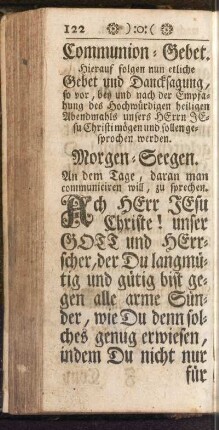 122 ):o:(
Communion-Gebet.
Hierauf folgen nun etliche
Gebet und Dancksagung,
so vor, bey und nach der Empfa-
hung des Hochwürdigen heiligen
Abendmahls unsers HErrn JE-
su Christi mögen und sollen ge-
sprochen werden.
Morgen-Seegen.
An dem Tage, daran man
communiciren will, zu sprechen.
Ach HErr JEsu
Christe! unser
GOTT und HErr-
scher, der Du langmü-
tig und gütig bist ge-
gen alle arme Sün-
der, wie Du denn sol-
ches genug erwiesen,
indem Du nicht nur
für